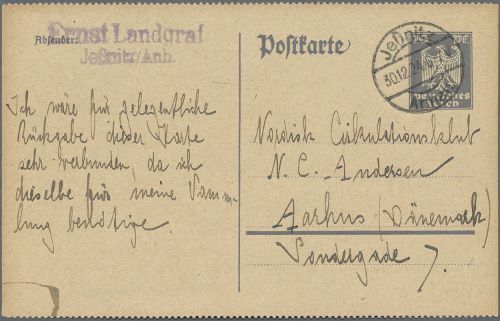 Absender:
Ernst Landgraf
Jeßnitz/Anh.
Ich wäre für gelegentliche
Rückgabe dieser Karte
sehr verbunden, da ich
dieselbe für meine Samm-
lung benötige.
Postkarte
Jeßnitz
30.12.24
Deutsches
Reich
Nordisk Cirkulationsklub
N. C. Andersen
Aarhus (Dänemark)
Söndergade 7.